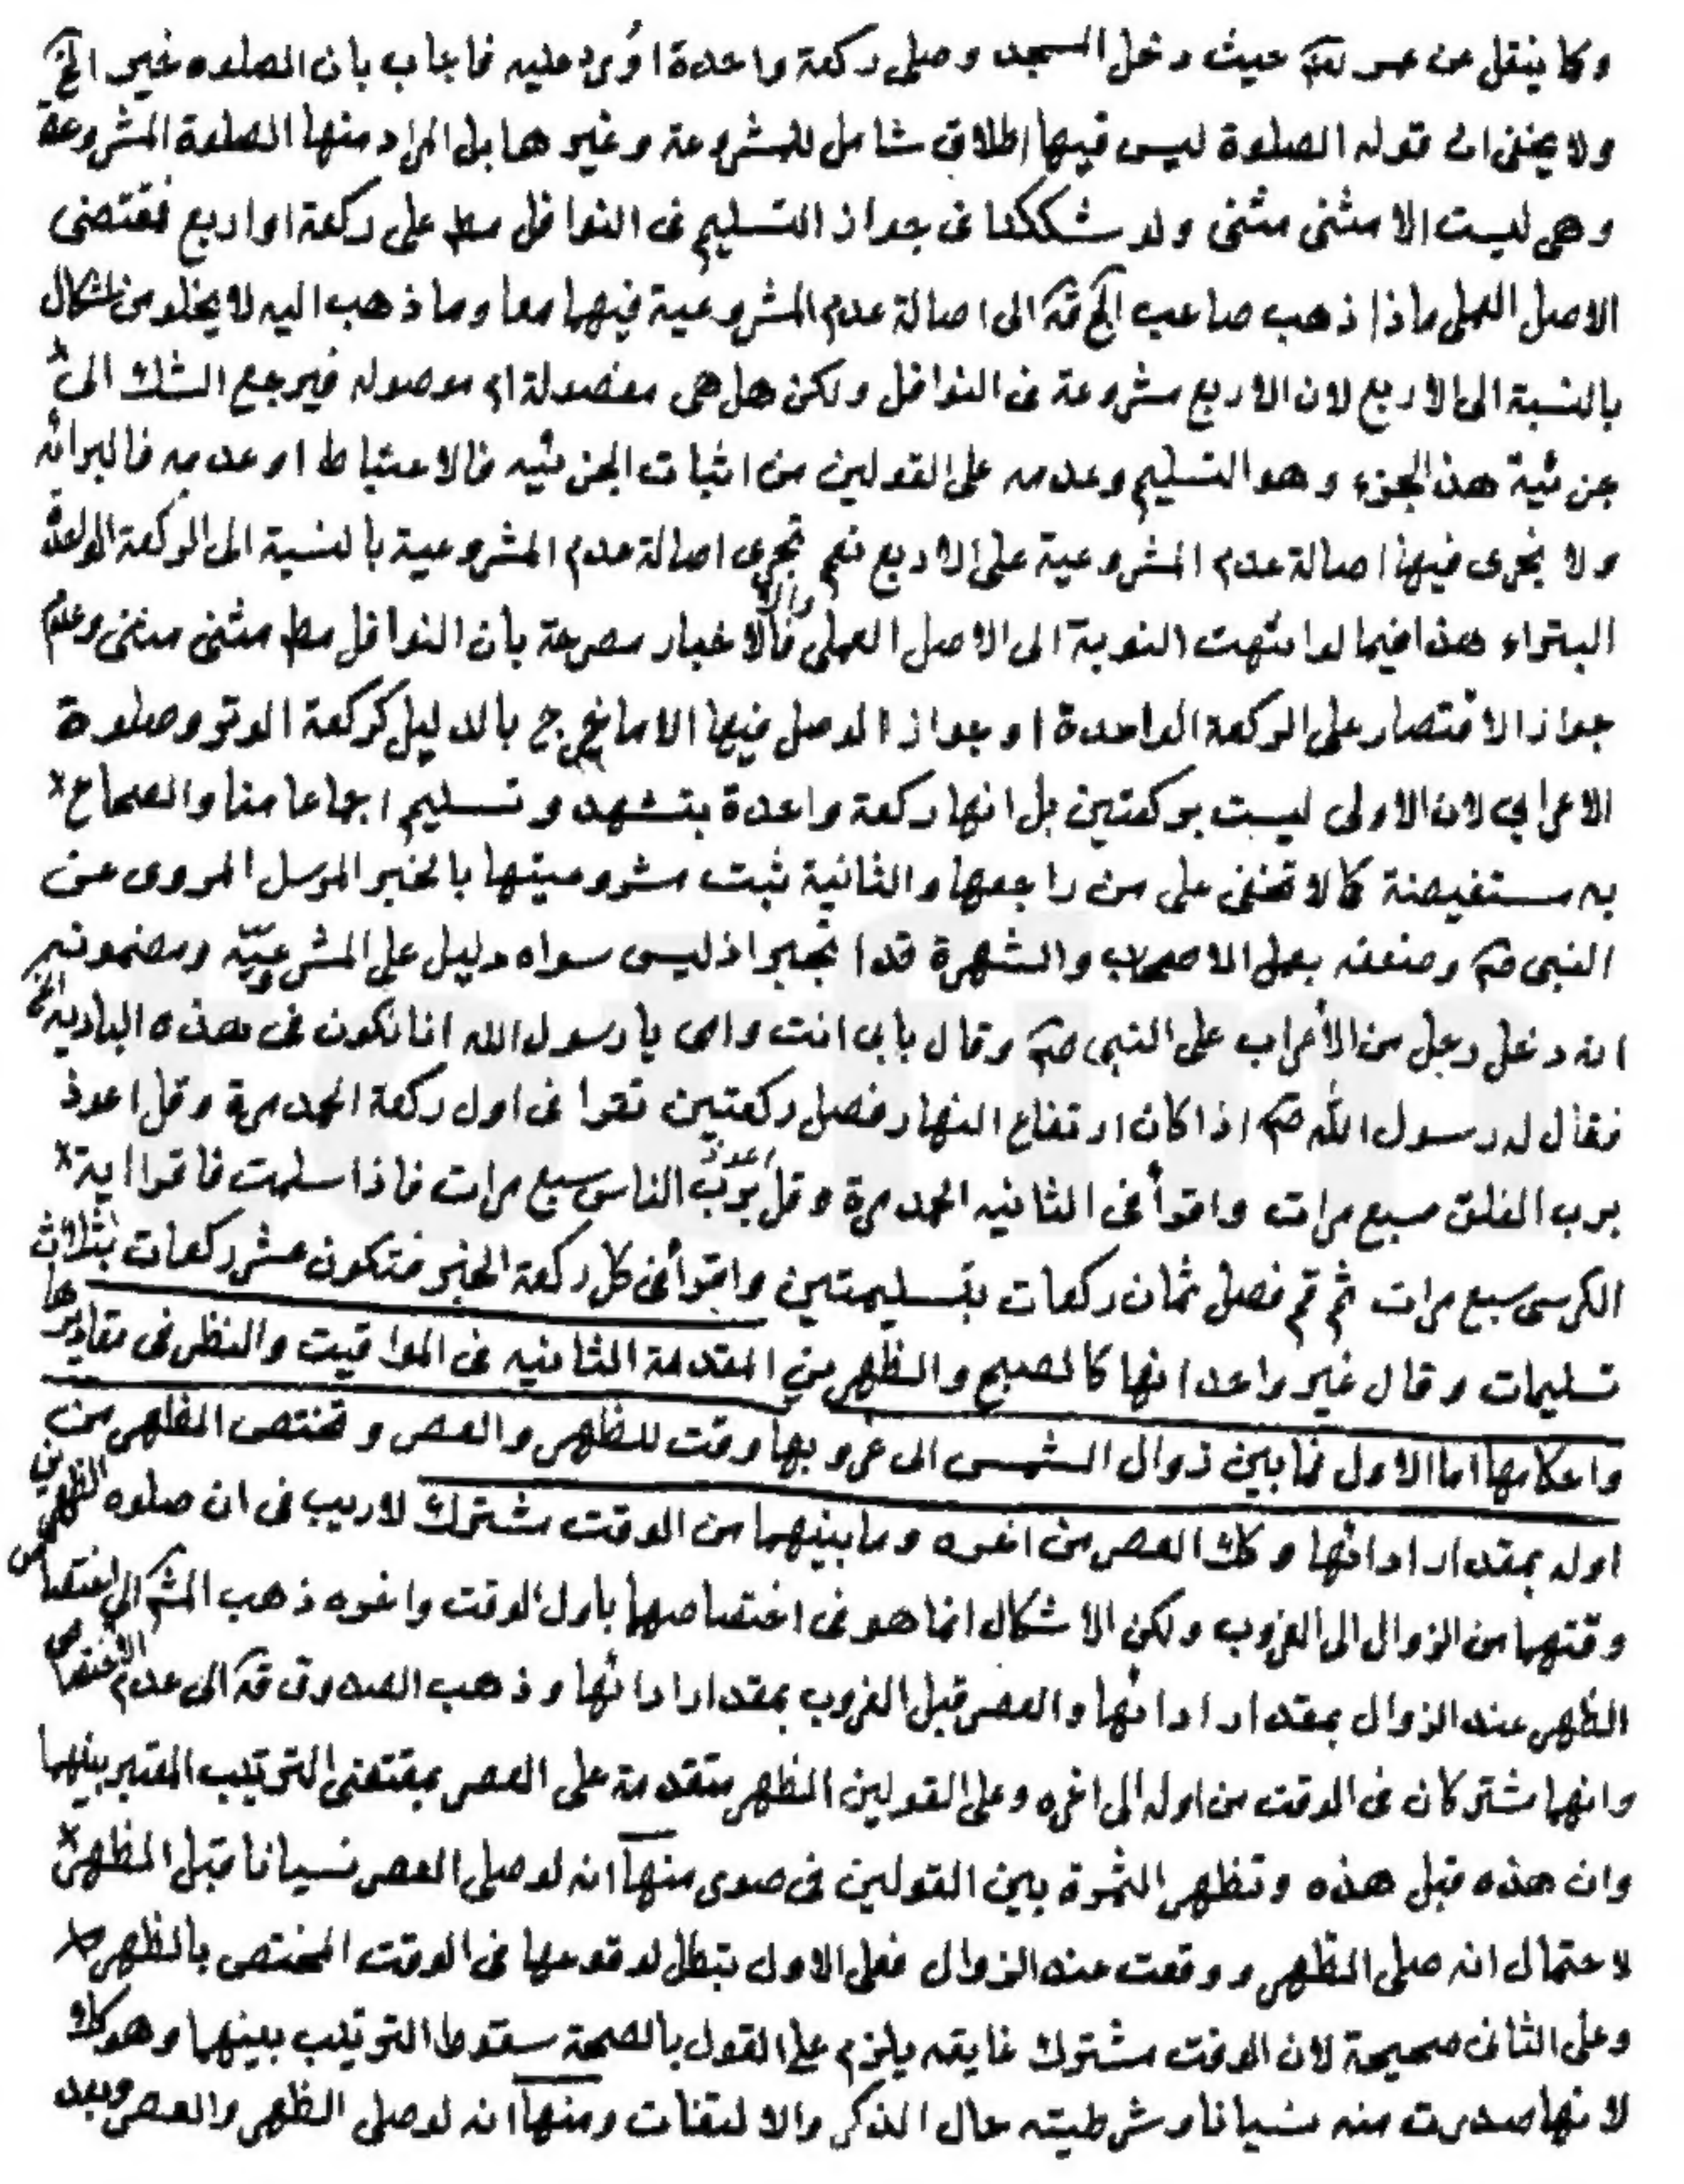 وكما ينقل عن عمر حيث دخل المسجد وصلى ركعة واحدة اورد عليه فاجاب بان الصلوه خير الخ
ولا يخفى ان قوله الصلوة ليس فيها اطلاق شامل للمشروعة وغيرها بل المراد منها الصلوة المشروعة
وهى ليست الا مثنى مثنى ولو شككنا فى جواز التسليم فى النوافل مط على ركعة او اربع فمقتضى
الاصل العملى ماذا ذهب صاحب الى اصالة عدم المشروعية فيهما معا وما ذهب اليه لا يخلو من اشكال
بالنسبة الى الاربع لان الاربع مشروعة فى النوافل ولكن هل هى مفصولة ام موصوله فيرجع الشك الى
جزئية هذا الجزء وهو التسليم وعدمه على القولين من اثبات الجزئيه فالاحتياط او عدمه فالبرائه
ولا يجرى فيها اصالة عدم المشروعية على الاربع نعم تجرى اصالة عدم المشروعية بالنسبة الى الركعة الواحدة
البتراء هذا فيما لو انتهت النوبة الى الاصل العملى والا فالاخبار مصرحة بان النوافل مط مثنى مثنى وعدم
جواز الاقتصار على الركعة الواحدة او جواز الوصل فيها الا ما خرج بالدليل كركعة الوتر وصلوة
الاعرابي لان الاولى ليست بركعتين بل انها ركعة واحدة بتشهد وتسليم اجماعا منا والصحاح
به مستفيضة كما لا تخفى على من راجعها والثانية ثبت مشروعيتها بالخبر المرسل المروى عن
النبى ص وضعفه بعمل الاصحاب والشهرة قد انجبر اذ ليس سواه دليل على المشروعيّة ومضمونه
انه دخل رجل من الأعراب على النبى ص وقال بابى انت وامى يا رسول الله انا نكون فى هذه الباديه الخ
فقال له رسول الله ص اذا كان ارتفاع النهار فصل ركعتين تقرا فى اول ركعة الحمد مرة وقل اعوذ
برب الفلق سبع مرات واقرأ فى الثانيه الحمد مرة وقل اعوذ برب الناس سبع مرات فاذا سلمت فاقرا اية
الكرسى سبع مرات ثم قم فصل ثمان ركعات بتسليمتين واقرأ فى كل ركعة الخبر فتكون عشر ركعات بثلاث
تسليمات وقال غير واحد انها كالصبح والظهرين المقدمة الثانيه فى المواقيت والنظر فى مقاديرها
واحكامها اما الاول فما بين زوال الشمس الى غروبها وقت للظهر والعصر وتختص الظهر من
اوله بمقدار ادائها وكك العصر من اخره وما بينهما من الوقت مشترك لاريب فى ان صلوه الظهرين
وقتهما من الزوال الى الغروب ولكن الاشكال انما هو فى اختصاصهما باول الوقت واخره ذهب المشه الى اختصاص
الظهر عند الزوال بمقدار ادائها والعصر قبل الغروب بمقدار ادائها وذهب الصدوق قه الى عدم الاختصاص
وانهما مشتركان فى الوقت من اوله الى اخره وعلى القولين الظهر متقدمة على العصر بمقتضى الترتيب المعتبر بينهما
وان هذه قبل هذه وتظهر الثمرة بين القولين فى صورى منها انه لو صلى العصر نسيانا قبل الظهر
لاحتمال انه صلى الظهر ووقعت عند الزوال فعلى الاول تبطل لوقوعها فى الوقت المختص بالظهر
وعلى الثانى صحيحة لان الوقت مشترك غايته يلزم على القول بالصحة سقوط الترتيب بينهما وهو كك
لانها صدرت منه نسيانا وشرطيته حال الذكر والالتفات ومنها انه لو صلى الظهر والعصر وبعد